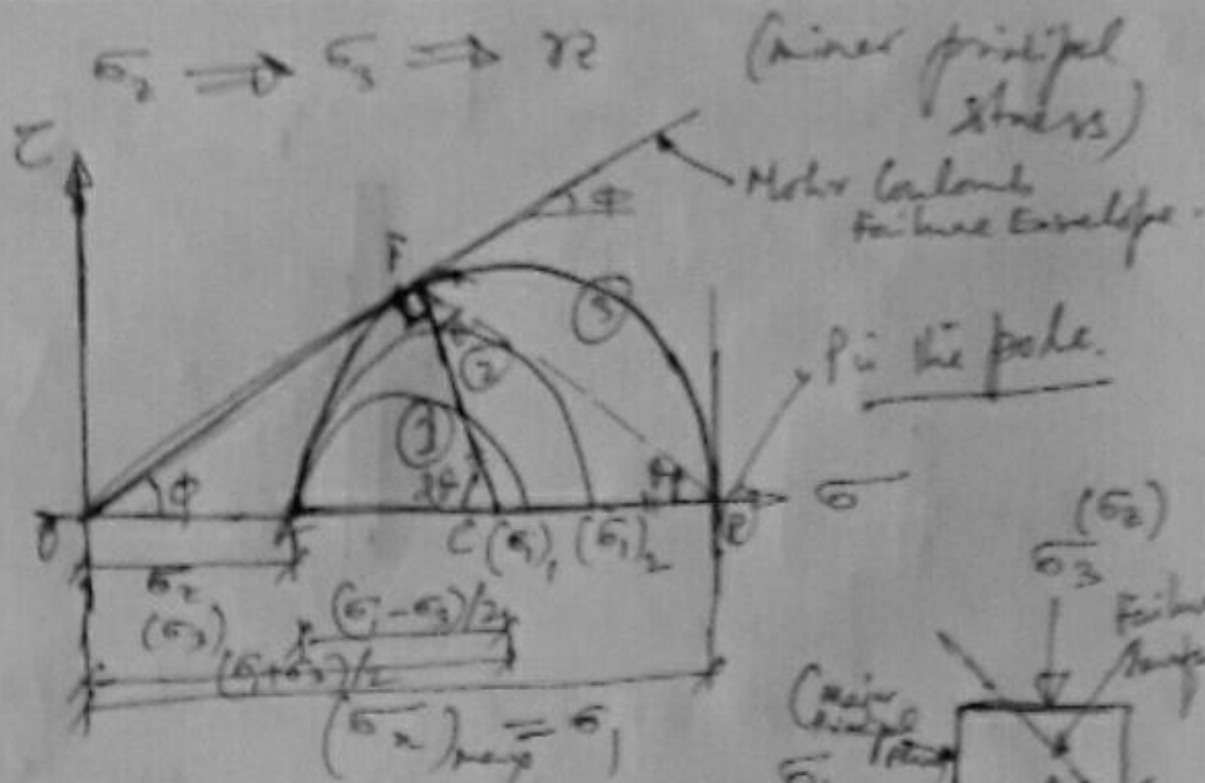 σz ⇒ σ3 ⇒ γz (minor principal
stress)
τ
Mohr Coulomb
Failure Envelope.
φ
F
3
P is the pole.
2
1
φ 2θ θ σ
O C (σ1)1 (σ1)2 P
σz
(σ3)
(σ1-σ3)/2
(σ1+σ3)/2
(σx)max = σ1
(σz)
σ3
Failure
(major
principal
plane
σ1